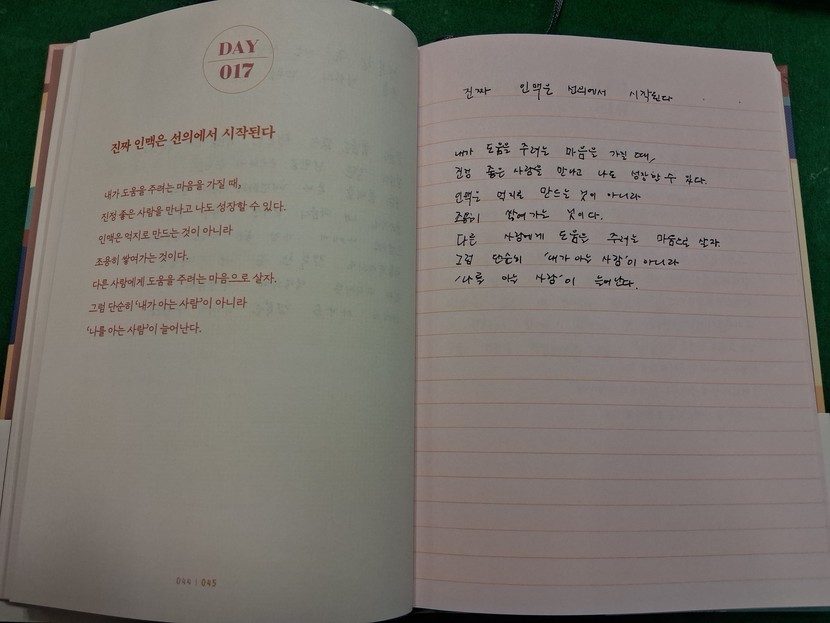 DAY
017
진짜 인맥은 선의에서 시작된다
내가 도움을 주려는 마음을 가질 때,
진정 좋은 사람을 만나고 나도 성장할 수 있다.
인맥은 억지로 만드는 것이 아니라
조용히 쌓여가는 것이다.
다른 사람에게 도움을 주려는 마음으로 살자.
그럼 단순히 ‘내가 아는 사람’이 아니라
‘나를 아는 사람’이 늘어난다.
044 / 045
진짜 인맥은 선의에서 시작된다
내가 도움을 주려는 마음을 가질 때,
진정 좋은 사람을 만나고 나도 성장할 수 있다.
인맥은 억지로 만드는 것이 아니라
조용히 쌓여가는 것이다.
다른 사람에게 도움은 주려는 마음으로 살자
그럼 단순히 '내가 아는 사람'이 아니라
'나를 아는 사람'이 늘어난다.